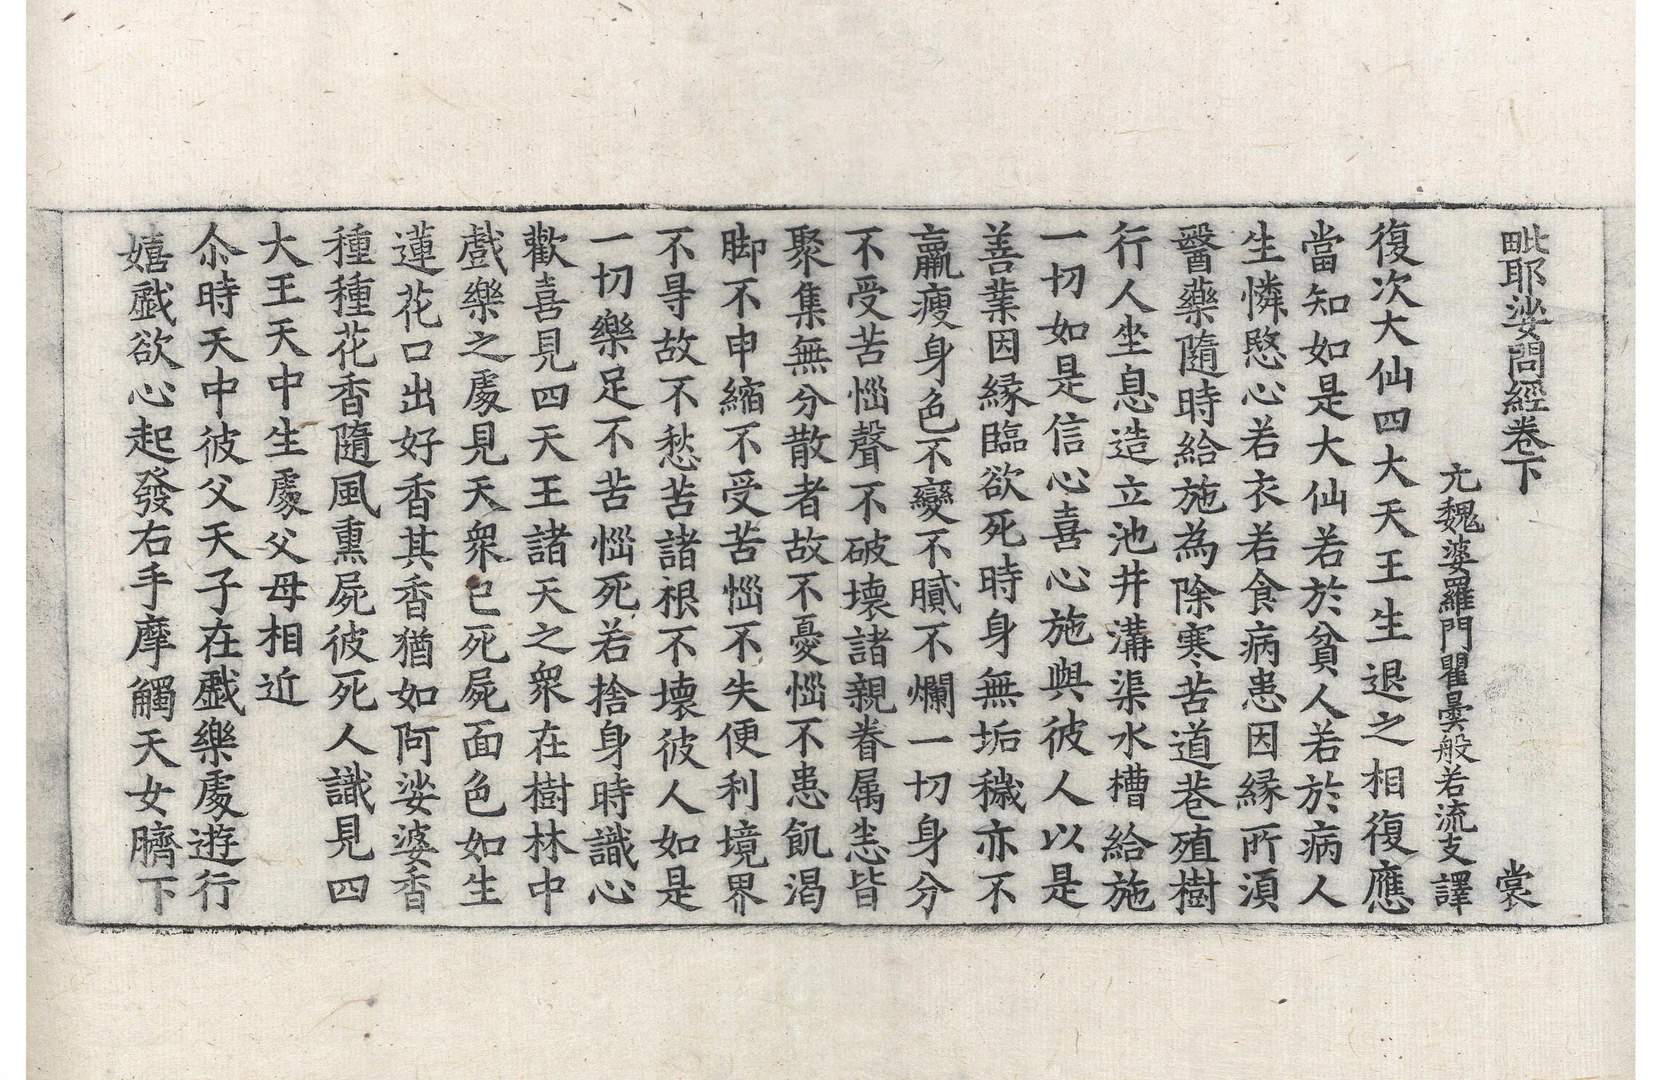 毗耶娑問經卷下　裳
元魏婆羅門瞿曇般若流支譯
復次大仙四大天王生退之相復應
當知如是大仙若於貧人若於病人
生憐愍心若衣若食病患因縁所湏
醫藥隨時給施為除寒苦道巷殖樹
行人坐息造立池井溝渠水槽給施
一切如是信心喜心施與彼人以是
善業因縁臨欲死時身無垢穢亦不
羸瘦身色不變不膩不爛一切身分
不受苦惱聲不破壞諸親眷属恙皆
聚集無分散者故不憂惱不患飢渴
脚不申縮不受苦惱不失便利境界
不㝵故不愁苦諸根不壞彼人如是
一切樂足不苦惱死若捨身時識心
歡喜見四天王諸天之衆在樹林中
戲樂之處見天衆已死屍面色如生
蓮花口出好香其香猶如阿娑婆香
種種花香隨風熏屍彼死人識見四
大王天中生處父母相近
尒時天中彼父天子在戲樂處遊行
嬉戲欲心起發右手摩觸天女臍下